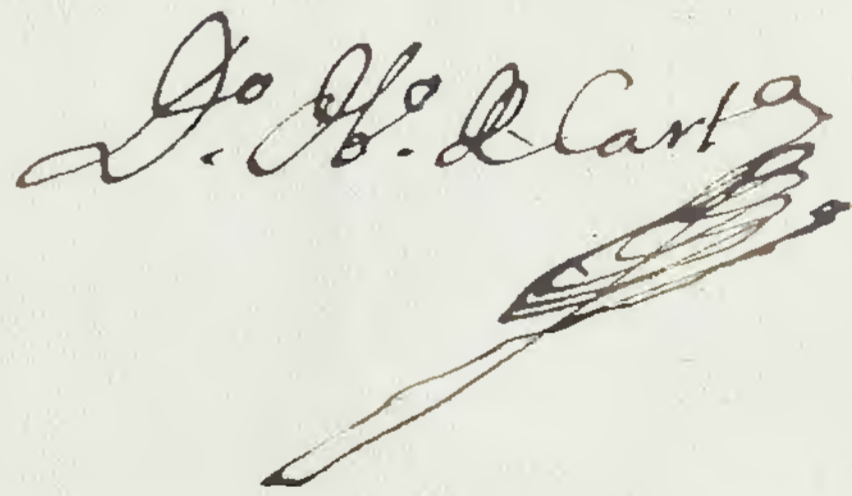 Dº. Obº. de Cartª